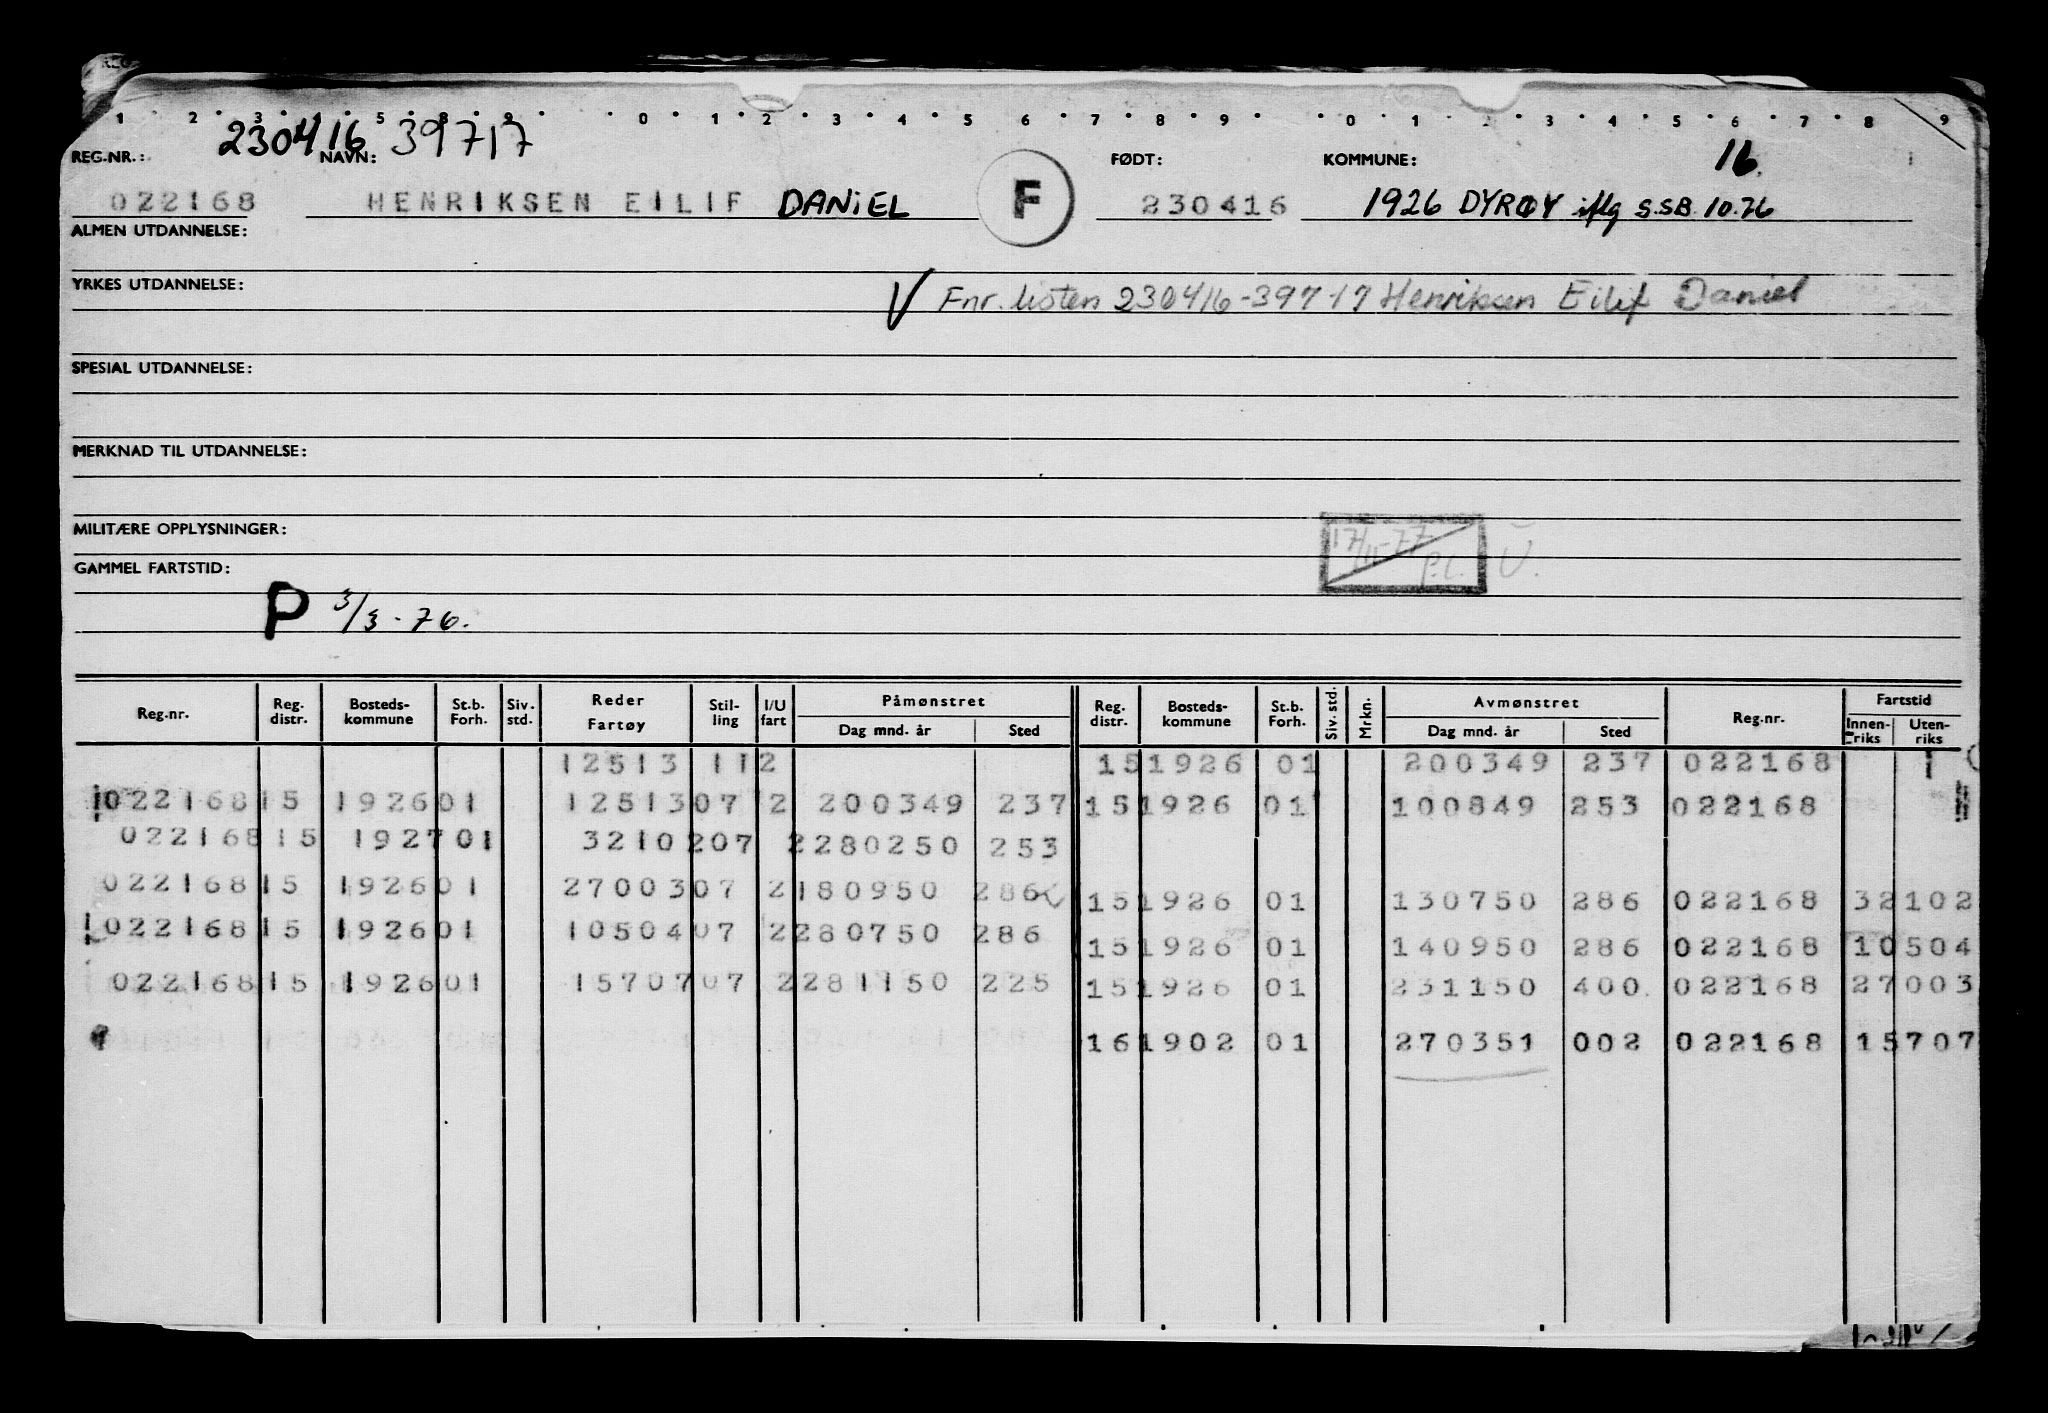 1 2 3 5 8 9 0 1 2 3 4 5 6 7 8 9 0 1 2 3 4 5 6 7 8 9
230416 39717
REG.NR.: NAVN: FØDT: KOMMUNE: 16.
022168 HENRIKSEN EILIF DANIEL F 230416 1926 DYRØY iflg S.SB. 10.76
ALMEN UTDANNELSE:
YRKES UTDANNELSE: V Fnr. listen 230416-39717 Henriksen Eilif Daniel
SPESIAL UTDANNELSE:
MERKNAD TIL UTDANNELSE:
MILITÆRE OPPLYSNINGER: 17/11-77 P.L. U.
GAMMEL FARTSTID:
P 3/3-76.
Reg.nr. Reg. distr. Bosteds-kommune St.b. Forh. Siv. std. Reder Fartøy Stil-ling I/U fart Påmønstret Dag mnd. år Sted Reg. distr. Bosteds-kommune St.b. Forh. Siv. std. Mrkn. Avmønstret Dag mnd. år Sted Reg.nr. Fartstid Innen-riks Uten-riks
12513 112 151926 01 200349 237 022168 1
022168 15 1926 01 12513 07 2 200349 237 151926 01 100849 253 022168
022168 15 1927 01 32102 07 2 280250 253
022168 15 1926 01 27003 07 2 180950 286 151926 01 130750 286 022168 32102
022168 15 1926 01 10504 07 2 280750 286 151926 01 140950 286 022168 10504
022168 15 1926 01 15707 07 2 281150 225 151926 01 231150 400 022168 27003
161902 01 270351 002 022168 15707